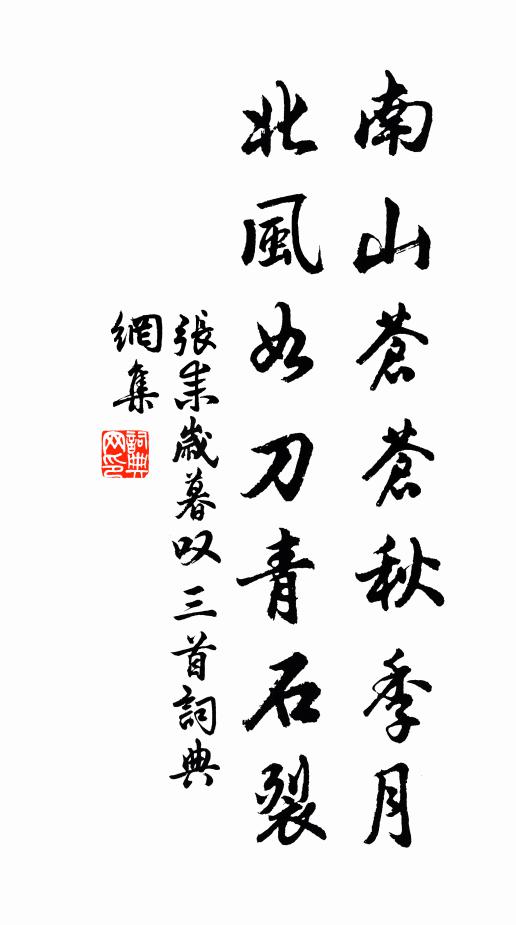 南山蒼蒼秋季月
北風如刀青石裂
張耒歲暮叹三首詞典
網集
詞典网印